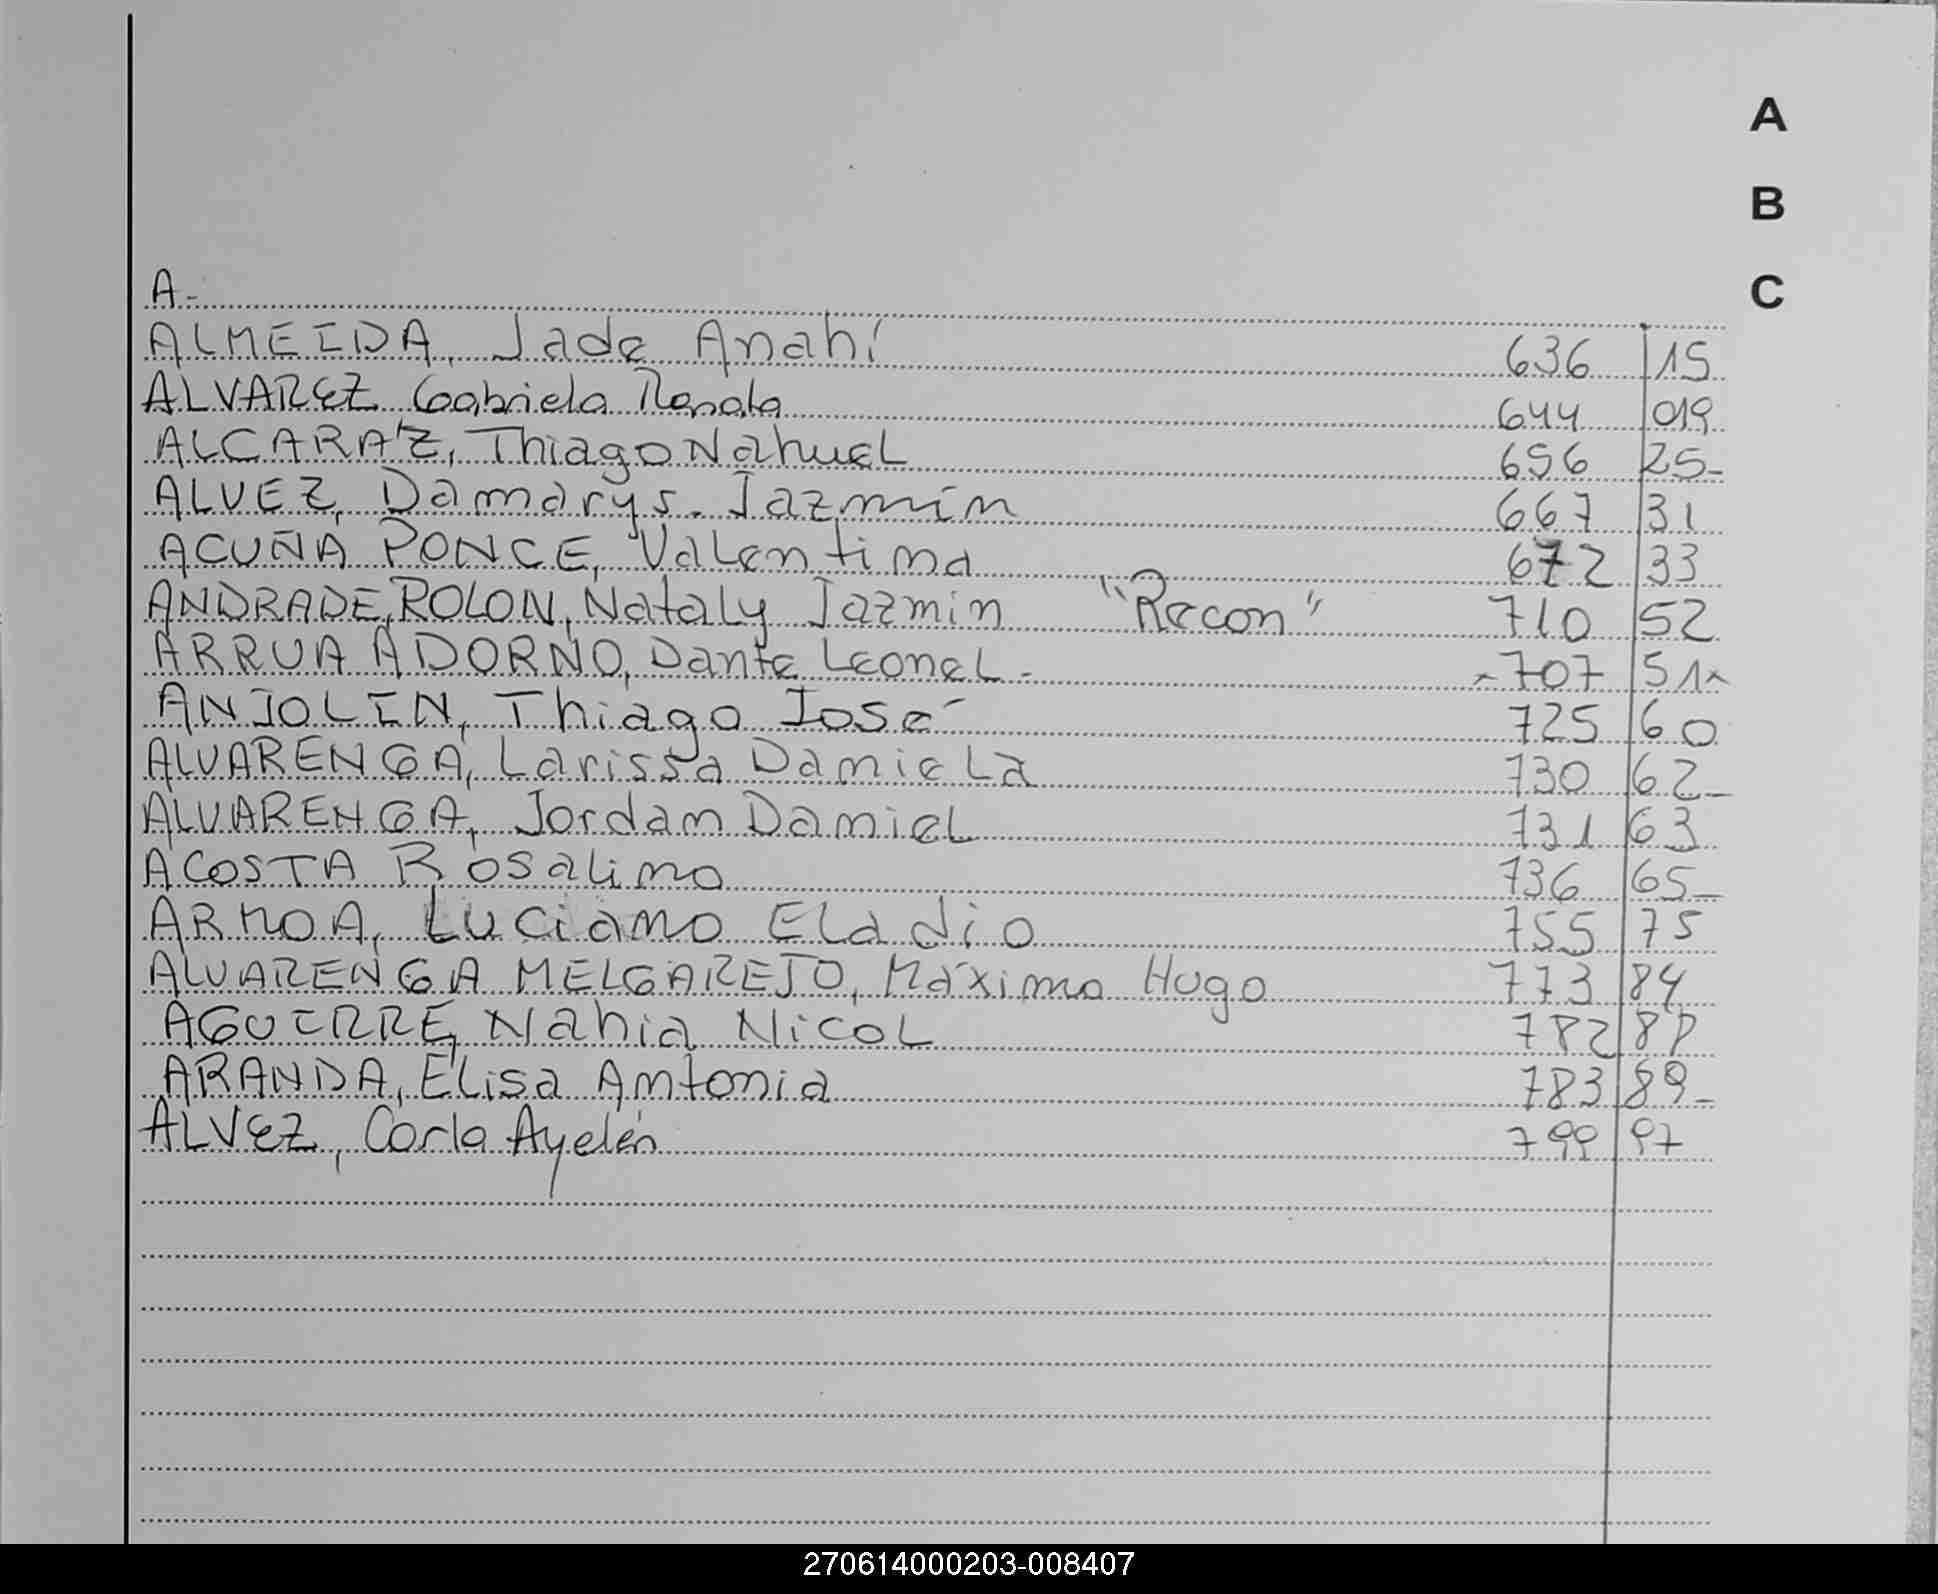 A
B
C
A-
ALMEIDA, Jade Anahí 636 15
ALVAREZ Gabriela Renata 644 019
ALCARAZ, Thiago Nahuel 656 25-
ALVEZ, Damarys Jazmín 667 31
ACUÑA PONCE, Valentina 672 33
ANDRADE, ROLON, Nataly Jazmin "Recon" 710 52
ARRUA ADORNO, Dante Leonel - 707 51
ANJOLIN, Thiago José 725 60
ALVARENGA, Larissa Daniela 730 62-
ALVARENGA, Jordan Daniel 731 63
ACOSTA Rosalino 736 65-
ARMOA, Luciano Eladio 755 75
ALVARENGA MELGAREJO, Máximo Hugo 773 84
AGUIRRE, Nahia Nicol 782 88
ARANDA, Elisa Antonia 783 89-
ALVEZ, Carla Ayelén 799 97
270614000203-008407